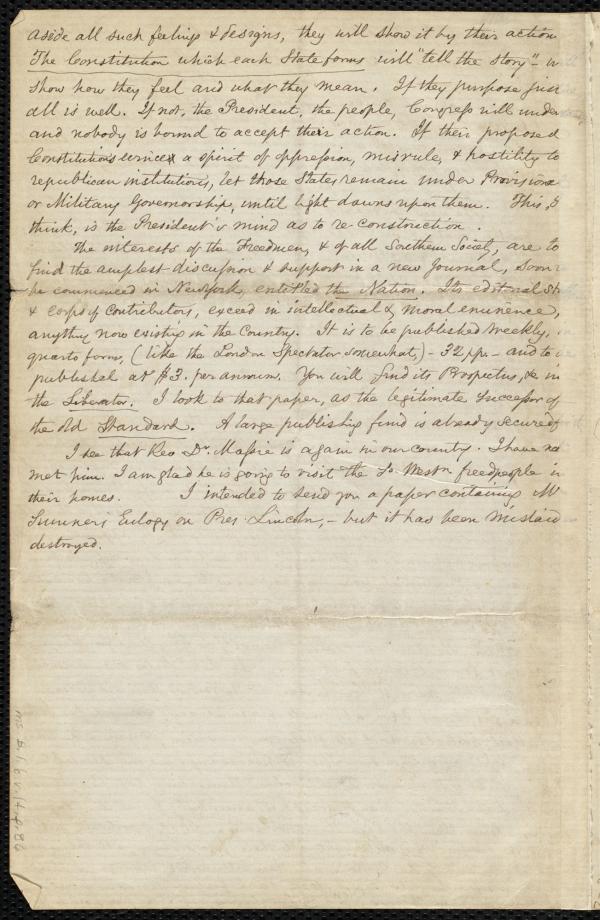 aside all such feelings & designs, they will show it by their action
The Constitution which each State forms will "tell the story"-
show how they feel and what they mean. If they purpose
all is well. If not, the President, the people, Congress will
and nobody is bound to accept their action. If their proposed
Constitutions evince a spirit of oppression, misrule, & hostility to
republican institutions, let those States remain under
or Military Governorship, until light dawns upon them. This, I
think, is the President's mind as to re-construction.
The interests of the Freedmen, & of all Southern Society, are to
find the amplest discussion & support in a new Journal, soon
be commenced in NewYork, entitled the Nation. Its editorial
& corps of contributors, exceed in intellectual & moral eminence,
anything now existing in the Country. It is to be published weekly,
quarto form, (like the London Spectator somewhat,) - 32 pp. - and to
published at $3. per annum. You will find its Prospectus, &c in
the Liberator. I look to that paper, as the legitimate successor of
the old Standard. A large publishing fund is already secured
I see that Rev Dr. Massie is again in our country. I have
met him. I am glad he is going to visit the So. Westn. freedpeople in
their homes. I intended to send you a paper containing Mr
Sumner's Eulogy on Pres. Lincoln, - but it has been mislaid
destroyed.